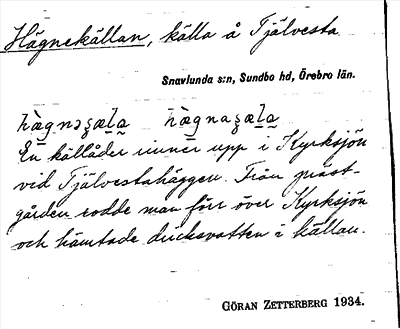 Hägnekällan, källa å Tjälvesta
Snavlunda s:n, Sundbo hd, Örebro län.
hàgnɔʂæl̯a hàgnaʂæl̯a
En källåder rinner upp i Kyrksjön
vid Tjälvestahäggen. Från präst-
gården rodde man förr över Kyrksjön
och hämtade dricksvatten i källan.
GÖRAN ZETTERBERG 1934.